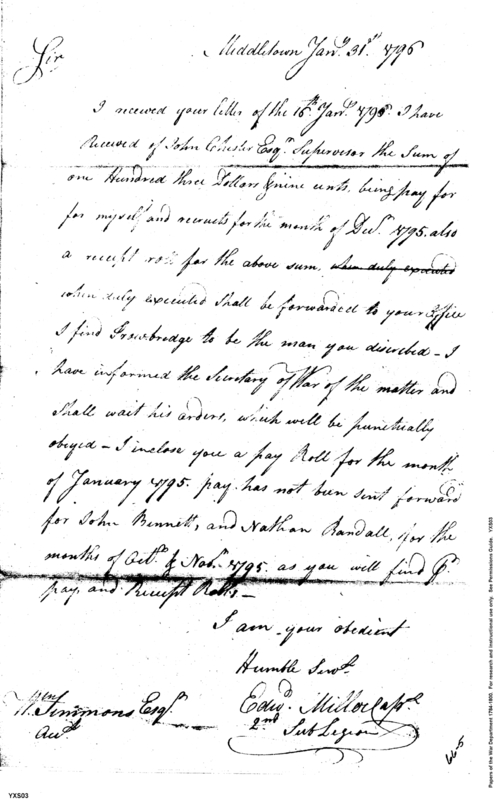 Middletown Jany. 31st. 1796
Sir
I received your letter of the 16th Jany. 1796. I have
Received of John Chester Esqr. Supervisor the Sum of
one Hundred three Dollars & nine cents. being pay for
for myself and recruits for the month of Decr. 1795. also
a receipt roll for the above sum, when duly executed
when duly executed Shall be forwarded to your office
I find Trowbridge to be the man you discribed - I
have informed the Secretary of War of the matter and
Shall wait his orders, which will be punctually
obeyed - I inclose you a pay Roll for the month
of January 1795. pay has not been sent forward
for John Bennett, and Nathan Randall, for the
months of Octr. & Novr. 1795. as you will find pr.
pay and Receipt Rolls -
I am your obedient
Humble Servt.
Wm Simmons Esqr.
Edwd. Miller Capt.
Acct.
2nd Sub Legion
66-5
YXS03
Papers of the War Department 1784-1800. For research and instructional use only. See Permissions Guide. YXS03